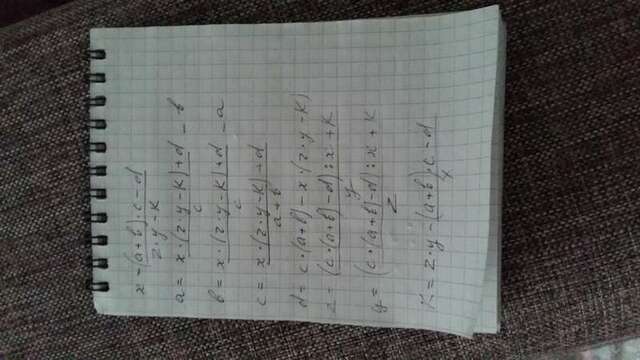 x = (a+b)·c-d / z·y-k
a = x·(z·y-k)+d / c - b
b = x·(z·y-k)+d / c - a
c = x·(z·y-k)+d / a+b
d = c·(a+b)-x·(z·y-k)
z = (c·(a+b)-d):x+k / y
y = (c·(a+b)-d):x+k / z
k = z·y-(a+b)·c-d / x